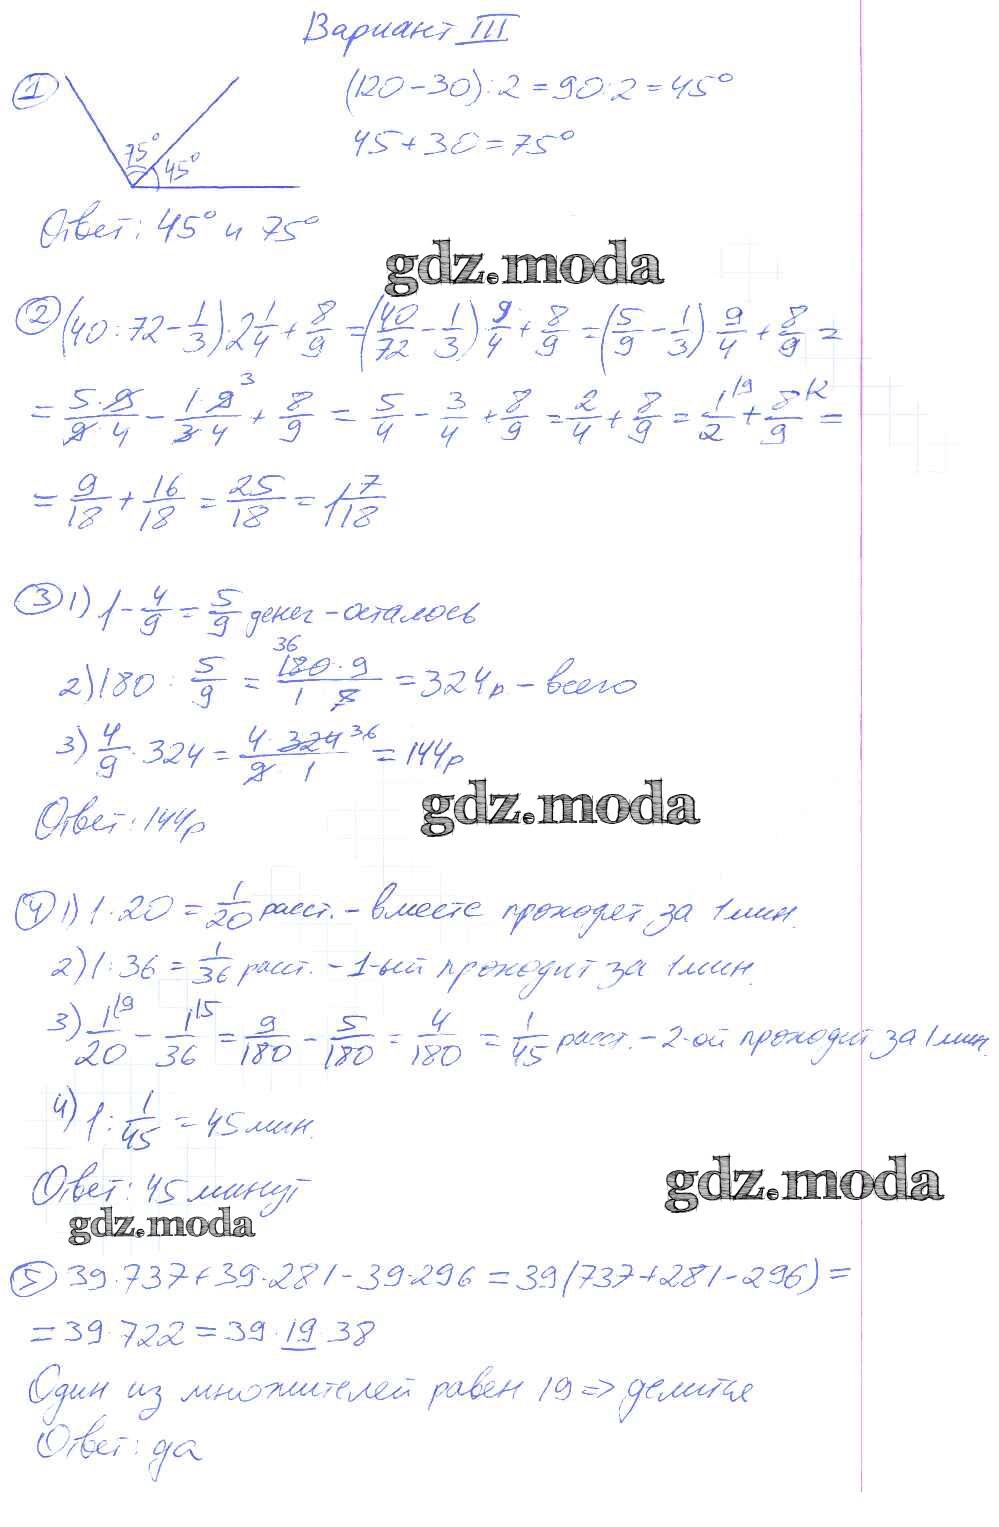 Вариант III
1 (120-30):2=90:2=45°
45+30=75°
75° 45°
Ответ: 45° и 75°
gdz.moda
2 (40:72-1/3)·2 1/4+8/9=(40/72-1/3)·9/4+8/9=(5/9-1/3)·9/4+8/9=
=5·9/9·4-1·9 3/3·4+8/9=5/4-3/4+8/9=2/4+8/9=1/2 |9+8/9 |2=
=9/18+16/18=25/18=1 7/18
3 1) 1-4/9=5/9 денег-осталось
2) 180:5/9=36 180·9/1 5=324р-всего
3) 4/9·324=4·324 36/9·1=144р
Ответ: 144р
gdz.moda
4 1) 1:20=1/20 расст.-вместе проходят за 1 мин.
2) 1:36=1/36 расст.-1-ый проходит за 1 мин.
3) 1/20 |9-1/36 |5=9/180-5/180=4/180=1/45 расст.-2-ой проходит за 1 мин.
4) 1:1/45=45 мин.
Ответ: 45 минут
gdz.moda
gdz.moda
5 39·737+39·281-39·296=39(737+281-296)=
=39·722=39·19·38
Один из множителей равен 19=>делится
Ответ: да